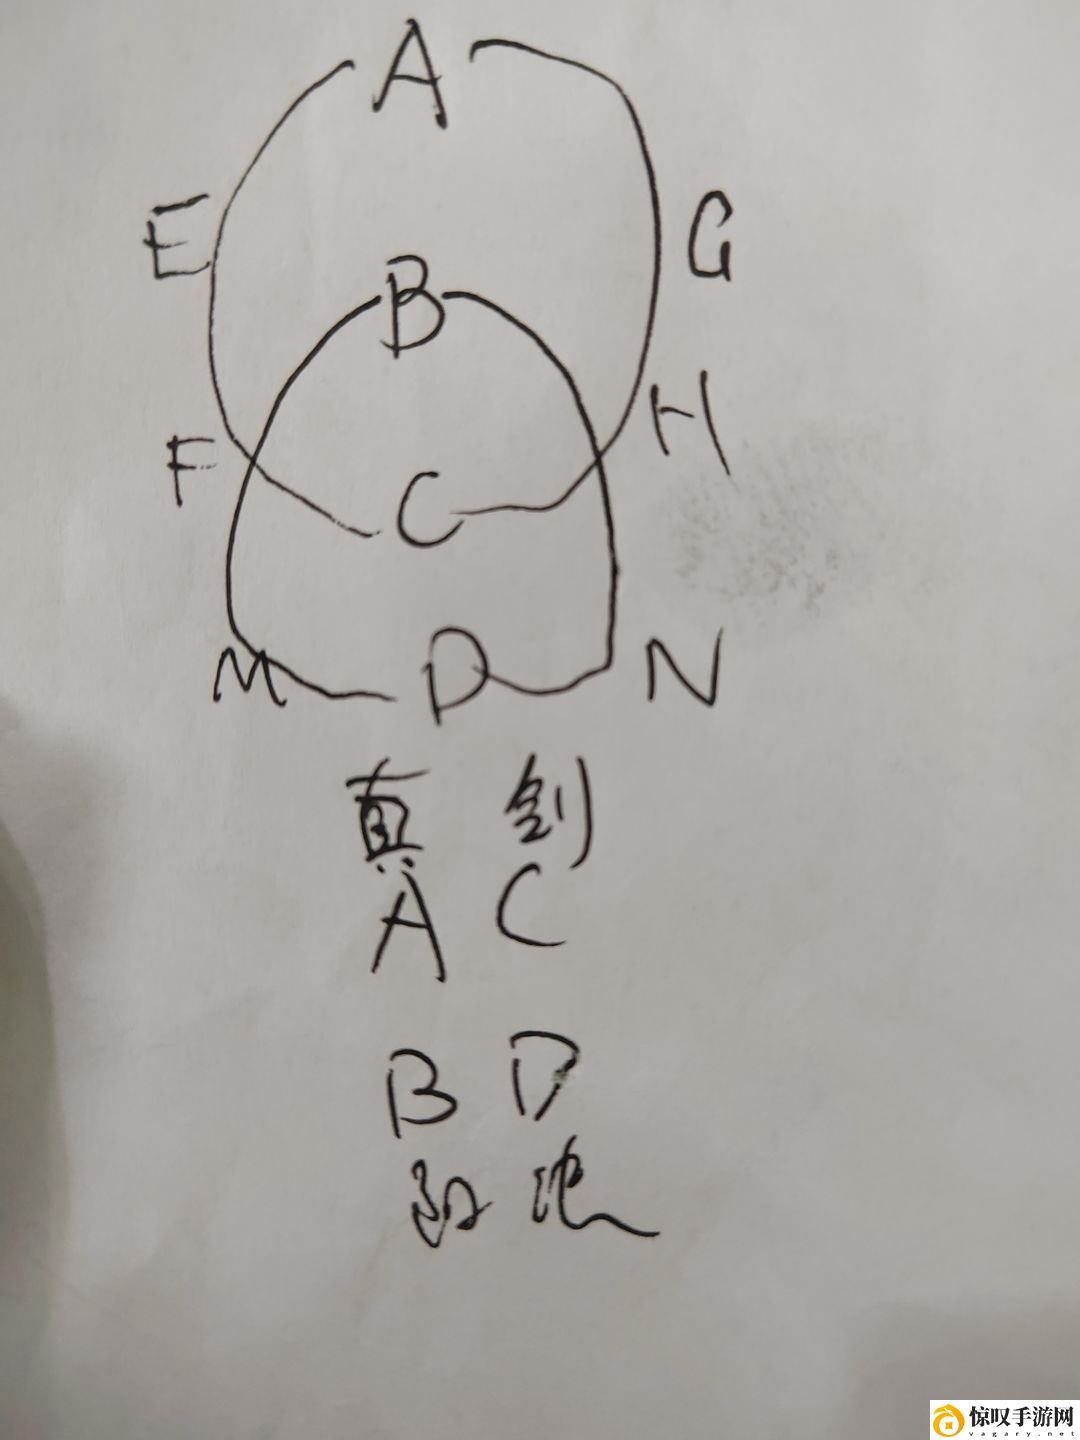 A
E G
B
F H
C
M D N
真 剑
A C
B D
阳 池
惊叹手游网
vagary.net